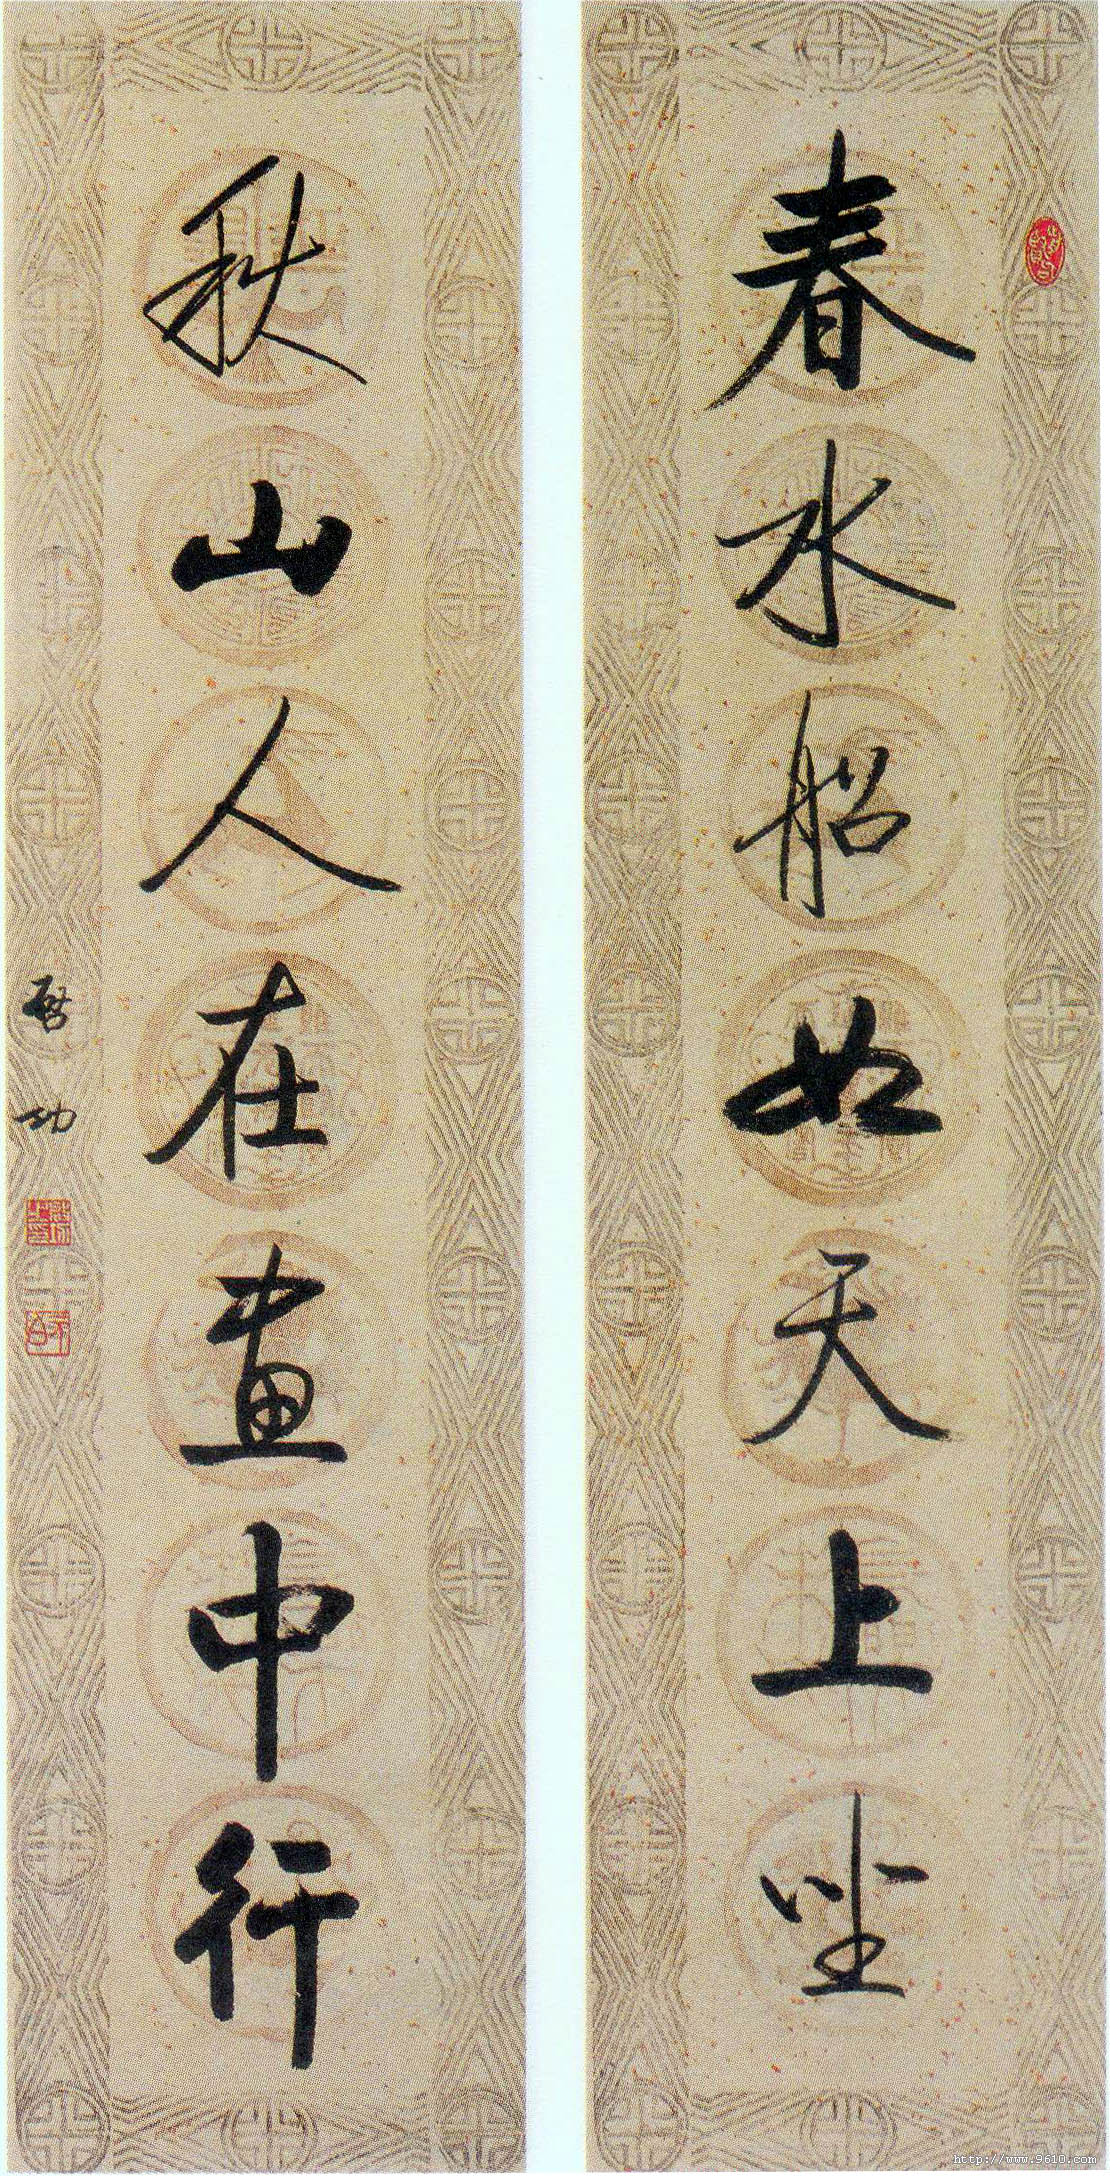 春水船如天上坐
秋山人在画中行
启功
http://www.9610.com